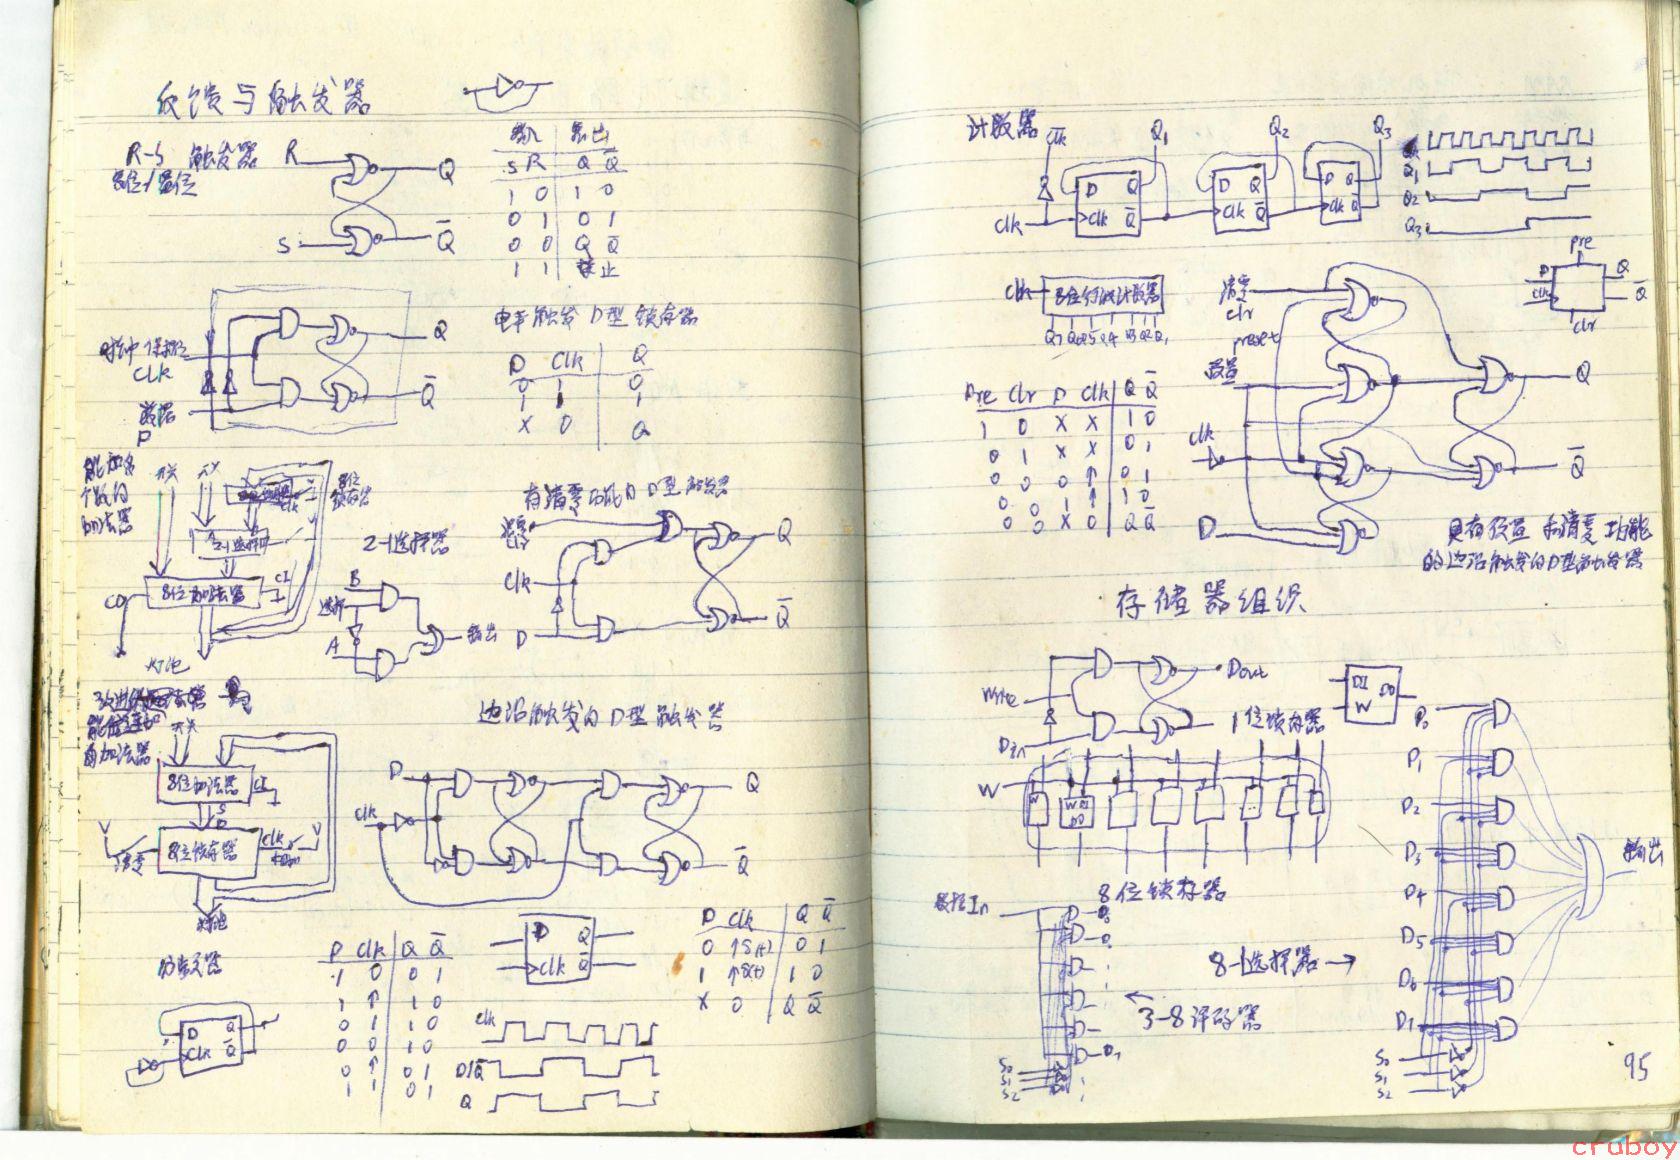 反馈与触发器
R-S 触发器
R
Q
S
Q̅
输入 输出
S R Q Q̅
1 0 1 0
0 1 0 1
0 0 Q Q̅
1 1 禁止
时钟 保持位
CLK
数据
D
Q
Q̅
电平触发 D型 锁存器
D Clk Q
0 1 0
1 1 1
X 0 Q
能加多个数的加法器
开关
8位锁存器
2-1选择器
CO
8位加法器
CI
灯泡
2-1选择器
B
选择
A
输出
有清零功能的D型触发器
清零
clr
Clk
D
Q
Q̅
开关
8位加法器
CI
S
D
8位锁存器
Clk
清零
灯泡
边沿触发的D型触发器
D
Clk
Q
Q̅
分频器
D Q
Clk Q̅
D Clk Q Q̅
1 0 0 1
1 ↑ 1 0
0 1 1 0
0 0 1 0
0 ↑ 0 1
1 1 0 1
D Q
Clk Q̅
D clk Q Q̅
0 ↑ 0 1
1 ↑ 1 0
X 0 Q Q̅
Clk
D/Q̅
Q
计数器
Clk
Clk
Q1
Q2
Q3
D Q
Clk Q̅
D Q
Clk Q̅
D Q
Clk Q̅
Q1
Q2
Q3
Clk
8位行波计数器
清零
clr
preset
预置
clk
D
Q
Q̅
pre
D
Clk
clr
Q
Q̅
Pre Clr D Clk Q Q̅
1 0 X X 1 0
0 1 X X 0 1
0 0 0 ↑ 0 1
0 0 1 ↑ 1 0
0 0 X 0 Q Q̅
具有预置和清零功能
的边沿触发的D型触发器
存储器组织
Write
Din
Dout
1位锁存器
DI DO
W
W
W
W DI
DO
8位锁存器
数据In
S0
S1
S2
← 3-8译码器
8-1选择器→
D0
D1
D2
D3
D4
D5
D6
D7
S0
S1
S2
输出
95
cruboy